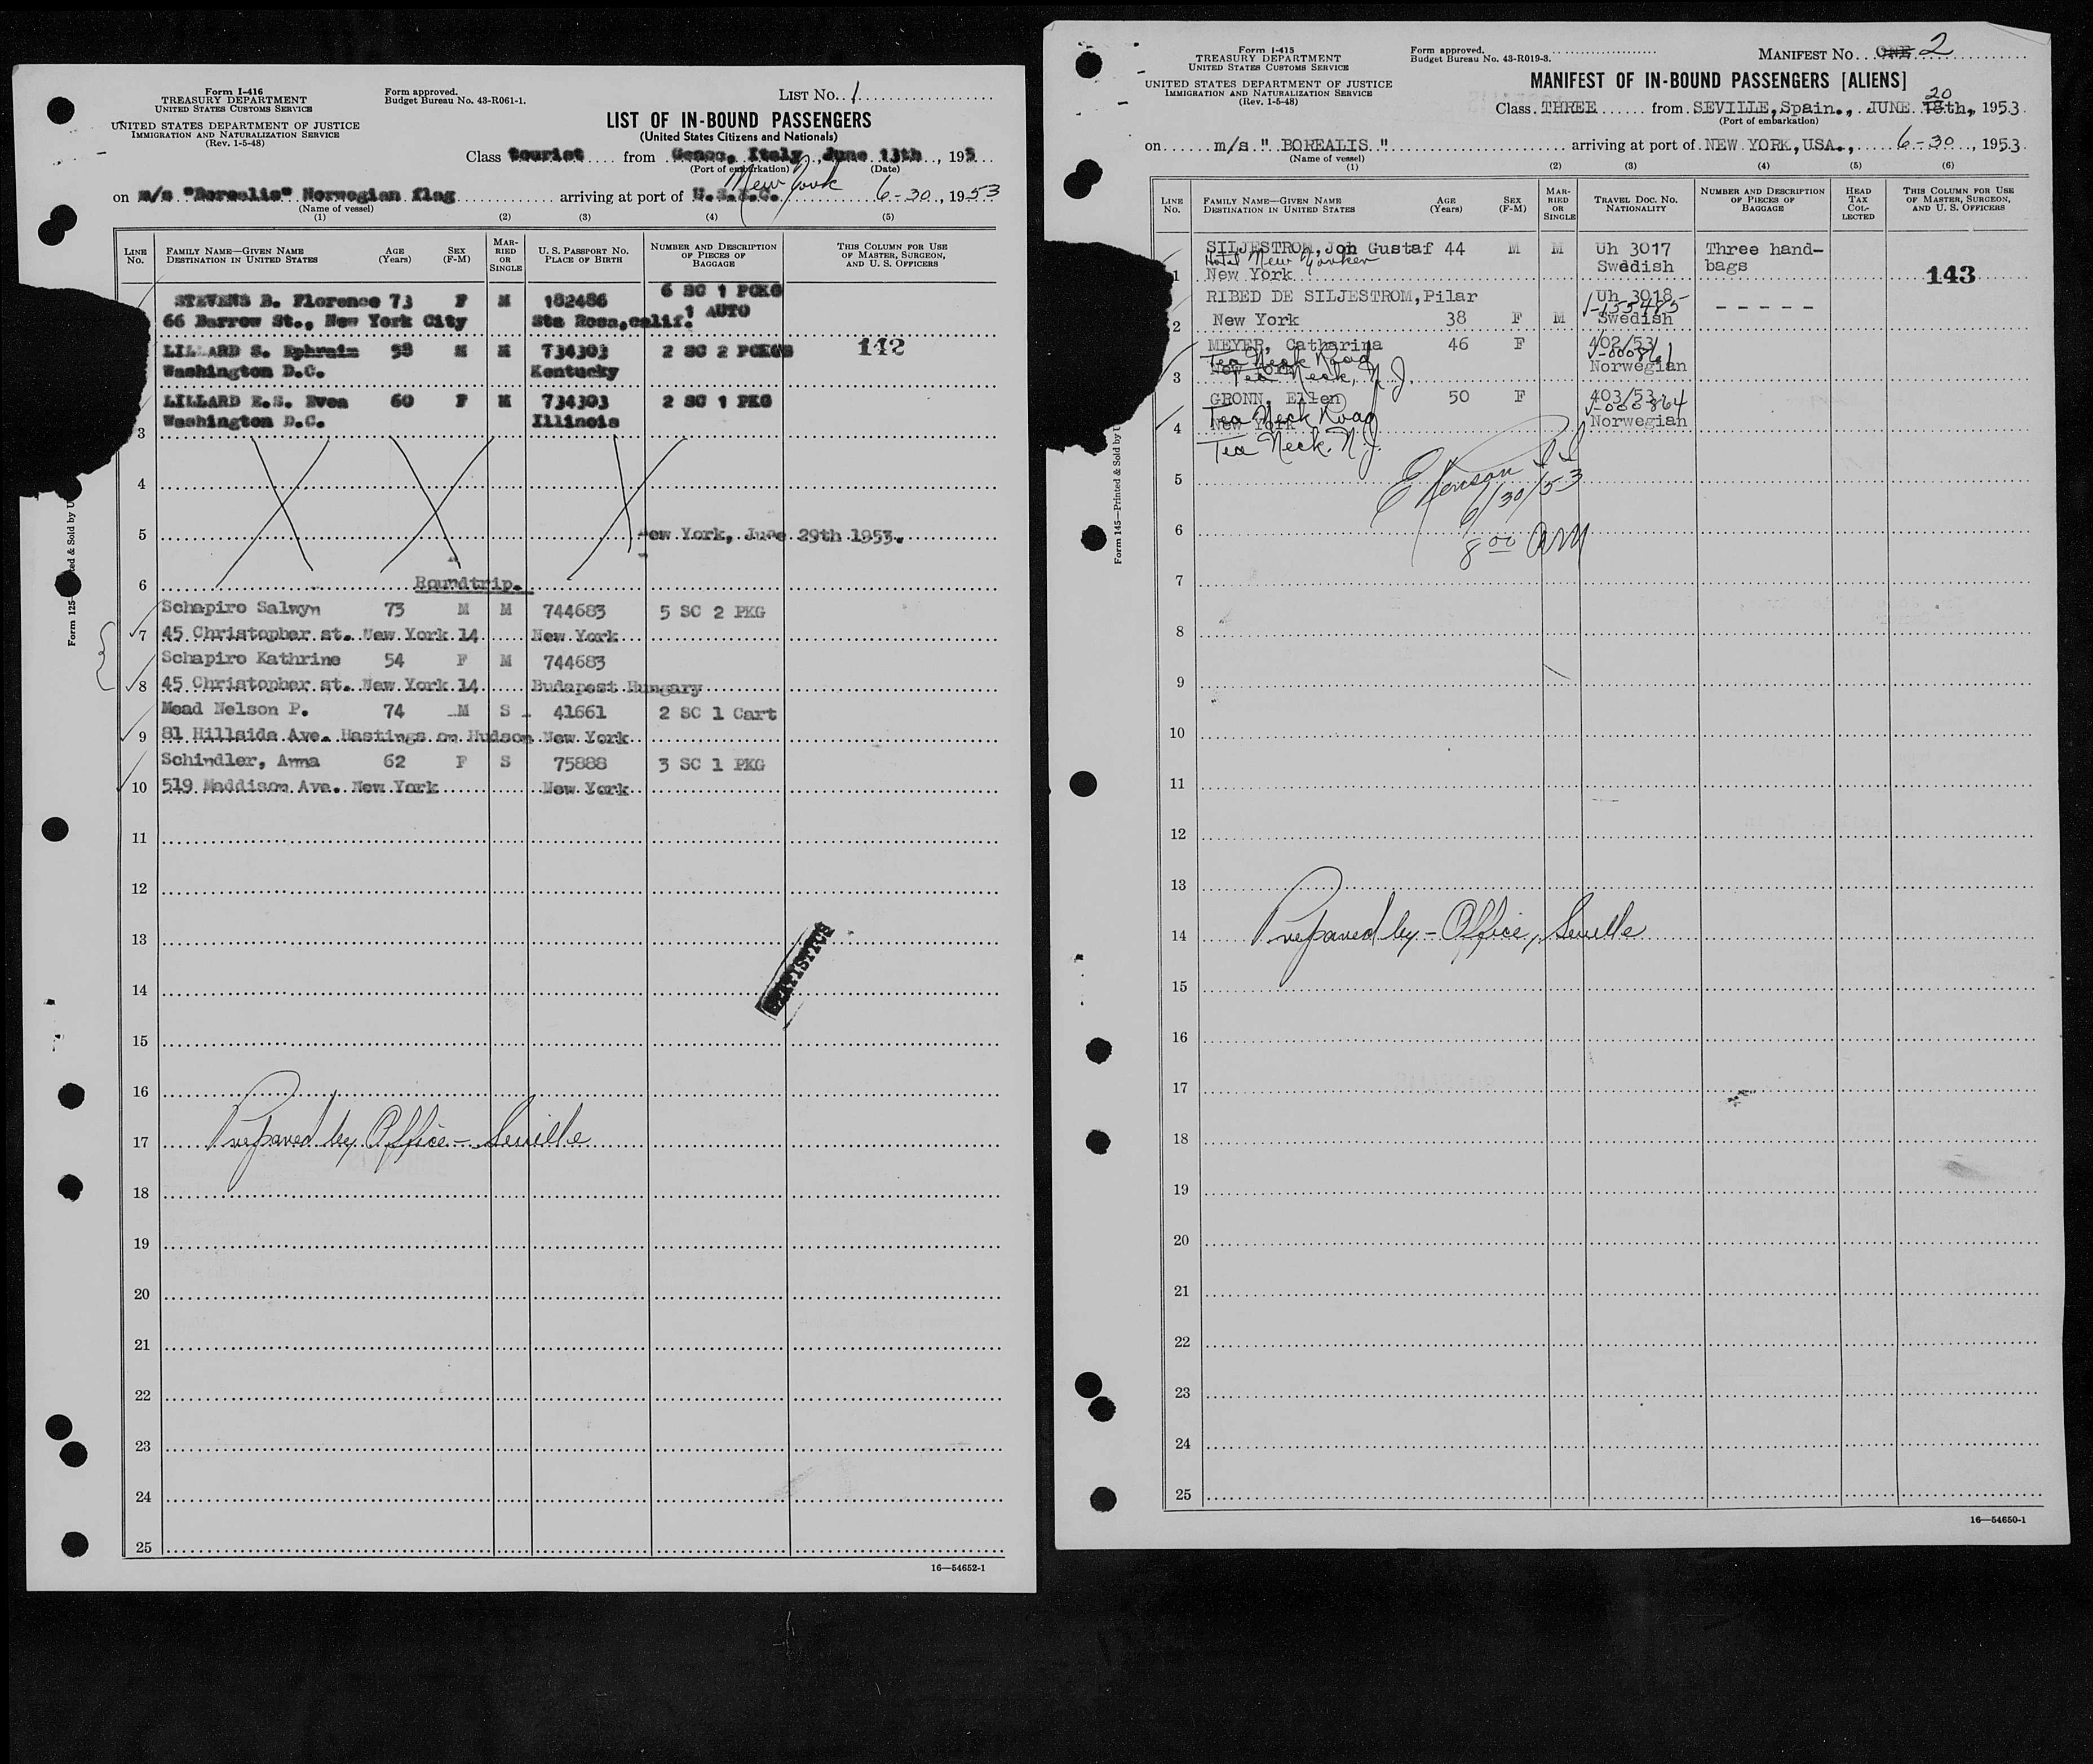 Form I-416
TREASURY DEPARTMENT
UNITED STATES CUSTOMS SERVICE
UNITED STATES DEPARTMENT OF JUSTICE
IMMIGRATION AND NATURALIZATION SERVICE
(Rev. 1-5-48)
Form approved.
Budget Bureau No. 43-R061-1.
LIST NO. 1
LIST OF IN-BOUND PASSENGERS
(United States Citizens and Nationals)
Class tourist from Genoa, Italy, June 13th, 195
(Port of embarkation) (Date)
New York
on m/s "Borealis" Norwegian flag arriving at port of 6-30, 1953
(Name of vessel)
(1) (2) (3) (4) (5)
LINE NO. FAMILY NAME—GIVEN NAME DESTINATION IN UNITED STATES AGE (Years) SEX (F-M) MARRIED OR SINGLE U. S. PASSPORT NO. PLACE OF BIRTH NUMBER AND DESCRIPTION OF PIECES OF BAGGAGE THIS COLUMN FOR USE OF MASTER, SURGEON, AND U. S. OFFICERS
STEVENS B. Florence 73 F M 182486 6 SC 1 PCKG
66 Barrow St., New York City Sta Rosa,calif. 1 AUTO
LILLARD S. Ephraim 58 M M 734303 2 SC 2 PCKGS 142
Washington D.C. Kentucky
LILLARD E.S. Evea 60 F M 734303 2 SC 1 PKG
3 Washington D.C. Illinois
4
5 ew York, June 29th 1953.
6 Roundtrip.
Schapiro Salwyn 73 M M 744683 5 SC 2 PKG
7 45 Christopher st. New York 14 New York
Schapiro Kathrine 54 F M 744683
8 45 Christopher st. New York 14 Budapest Hungary
Mead Nelson P. 74 M S 41661 2 SC 1 Cart
9 81 Hillside Ave. Hastings on Hudson New York
Schindler, Anna 62 F S 75888 3 SC 1 PKG
10 519 Maddison Ave. New York New York
11
12
13
STATISTICS
14
15
16
17 Prepared by Office - Seville
18
19
20
21
22
23
24
25
16—54652-1
Form 125
Form I-415
TREASURY DEPARTMENT
UNITED STATES CUSTOMS SERVICE
UNITED STATES DEPARTMENT OF JUSTICE
IMMIGRATION AND NATURALIZATION SERVICE
(Rev. 1-5-48)
Form approved.
Budget Bureau No. 43-R019-3.
MANIFEST NO. ONE 2
MANIFEST OF IN-BOUND PASSENGERS [ALIENS]
Class THREE from SEVILLE, Spain., JUNE 20 th, 1953
(Port of embarkation)
on m/s " BOREALIS " arriving at port of NEW YORK, USA., 6-30, 1953
(Name of vessel)
(1) (2) (3) (4) (5) (6)
LINE NO. FAMILY NAME—GIVEN NAME DESTINATION IN UNITED STATES AGE (Years) SEX (F-M) MARRIED OR SINGLE TRAVEL DOC. NO. NATIONALITY NUMBER AND DESCRIPTION OF PIECES OF BAGGAGE HEAD TAX COLLECTED THIS COLUMN FOR USE OF MASTER, SURGEON, AND U. S. OFFICERS
SILJESTROM, Jon Gustaf 44 M M Uh 3017 Three hand-
Hotel New Yorker
1 New York Swedish bags 143
RIBED DE SILJESTROM, Pilar Uh 3018
V-155485
2 New York 38 F M Swedish - - - - -
MEYER, Catharina 46 F 402/53
Tea Neck Road
3 New York Norwegian
Tea Neck, N.J.
GRONN, Ellen 50 F 403/53
V-000864
Tea Neck Road
4 New York Norwegian
Tea Neck. N.J.
5
6/30/53
6
8 00 AM
7
8
9
10
11
12
13
14 Prepared by - Office, Seville
15
16
17
18
19
20
21
22
23
24
25
16—54650-1
Form 145—Printed & Sold by